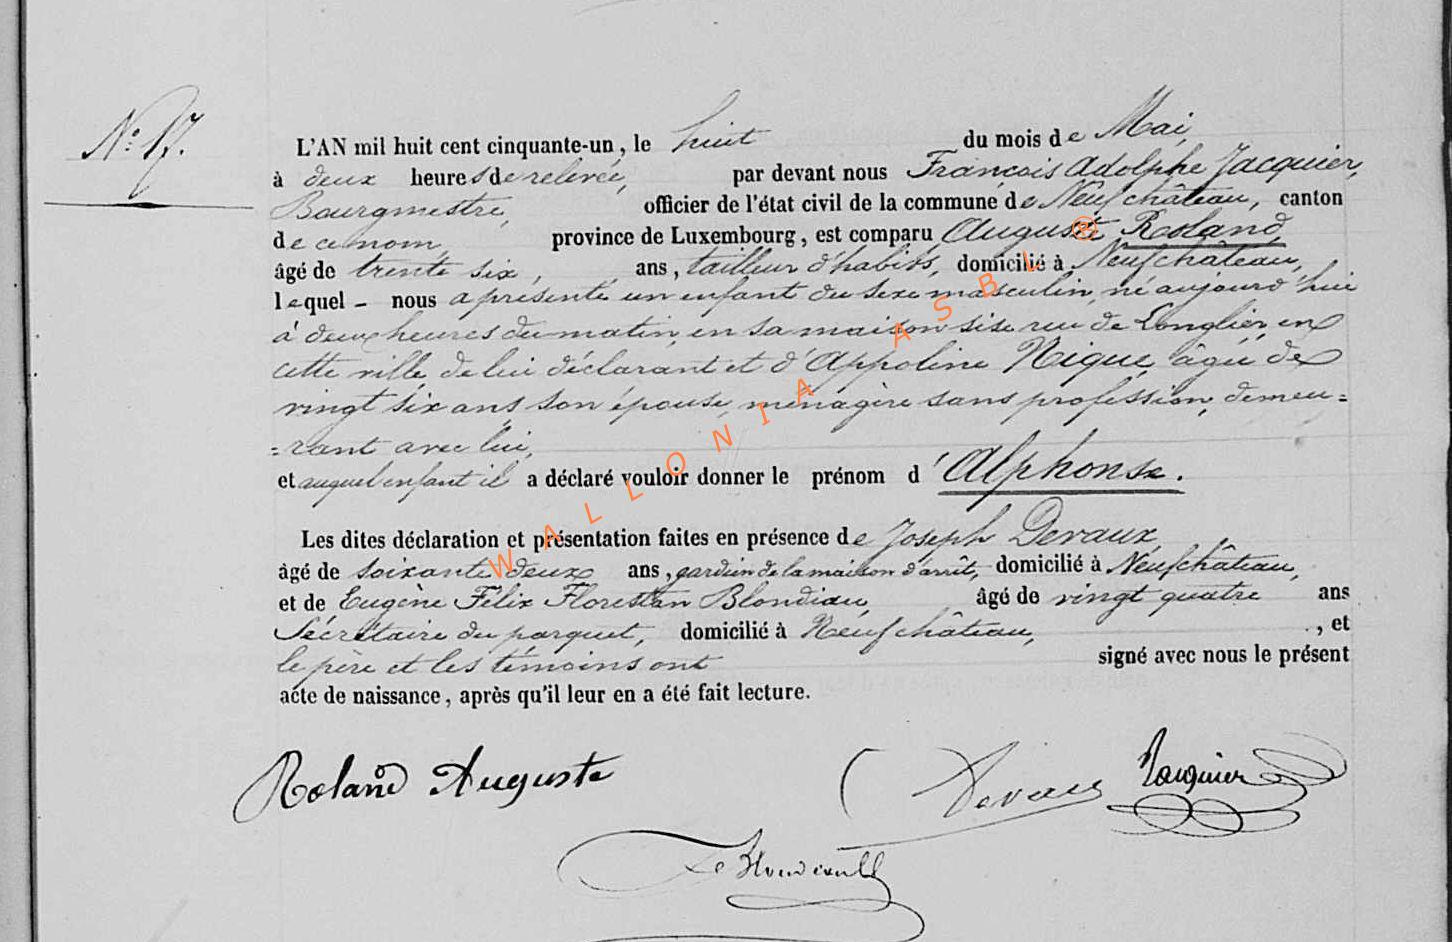 N° 17.
L'AN mil huit cent cinquante-un, le huit du mois de Mai,
à deux heures de relevée, par devant nous François Adolphe Jacquier,
Bourgmestre, officier de l'état civil de la commune de Neufchâteau, canton
de ce nom, province de Luxembourg, est comparu Auguste Roland,
âgé de trente six, ans, tailleur d'habits, domicilié à Neufchâteau,
lequel - nous a présenté un enfant du sexe masculin, né aujourd'hui
à deux heures du matin, en sa maison sise rue de Longlier, en
cette ville, de lui déclarant et d'Appoline Nique, âgée de
vingt six ans, son épouse, ménagère sans profession, demeu=
=rant avec lui,
et auquel enfant il a déclaré vouloir donner le prénom d'Alphonse.
Les dites déclaration et présentation faites en présence de Joseph Devaux,
âgé de soixante deux ans, gardien de la maison d'arrêt, domicilié à Neufchâteau,
et de Eugène Félix Florestan Blondiau, âgé de vingt quatre ans
Sécrétaire du parquet, domicilié à Neufchâteau, , et
le père et les témoins ont signé avec nous le présent
acte de naissance, après qu'il leur en a été fait lecture.
Roland Auguste Devaux Jacquier
WALLONIA ASBL ®